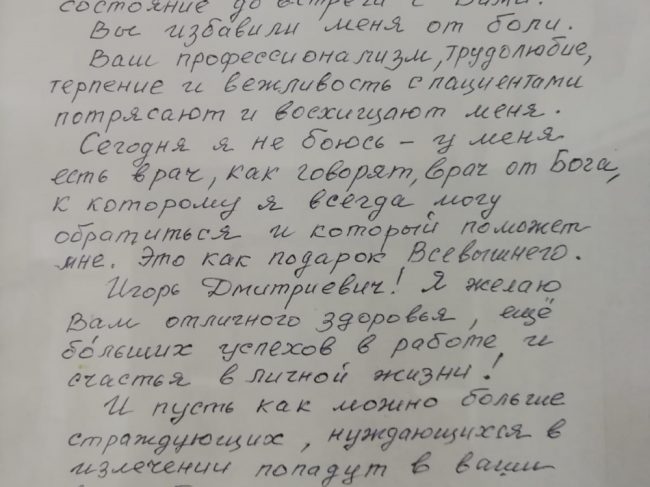 состояние до встречи с Вами.
Вы избавили меня от боли.
Ваш профессионализм, трудолюбие,
терпение и вежливость с пациентами
потрясают и восхищают меня.
Сегодня я не боюсь – у меня
есть врач, как говорят, врач от Бога,
к которому я всегда могу
обратиться и который поможет
мне. Это как подарок Всевышнего.
Игорь Дмитриевич! Я желаю
Вам отличного здоровья, ещё
бо́льших успехов в работе и
счастья в личной жизни!
И пусть как можно больше
страждующих, нуждающихся в
излечении попадут в ваши